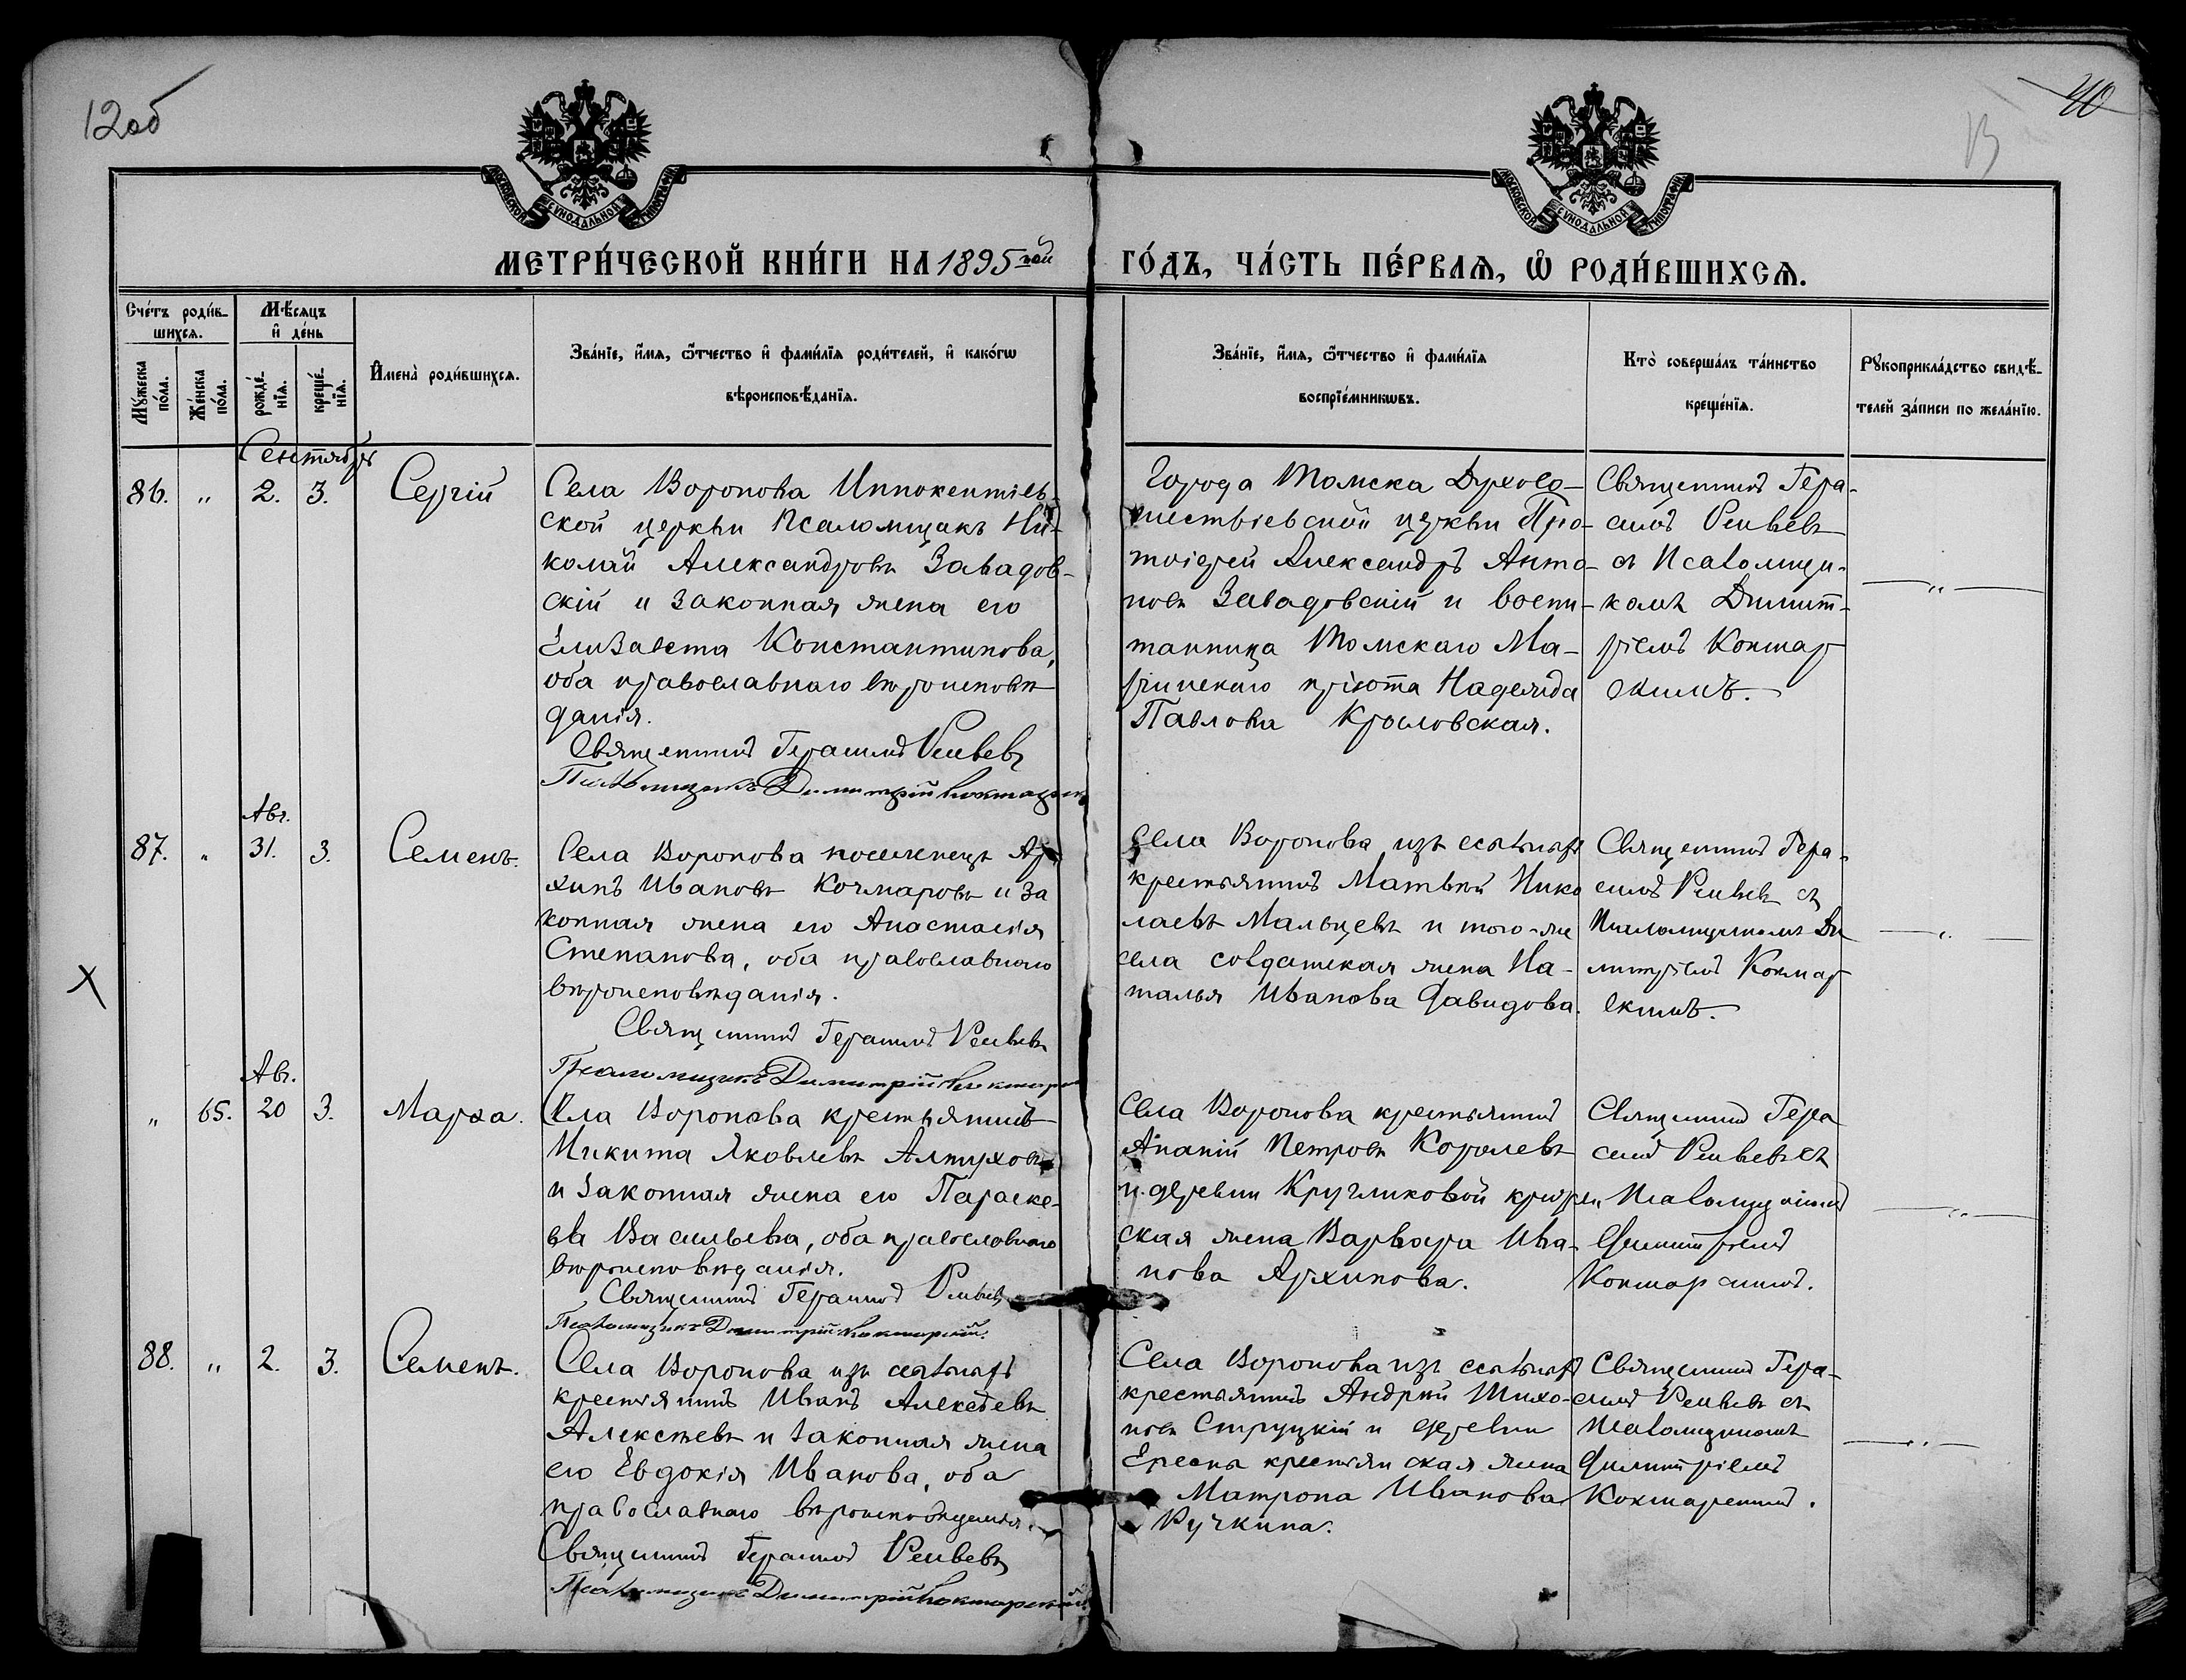 12об
40
13
МОСКОВСКОЙ СУНОДАЛЬНОЙ ТИПОГРАФІИ
МОСКОВСКОЙ СУНОДАЛЬНОЙ ТИПОГРАФІИ
МЕТРИ́ЧЕСКОЙ КНИ́ГИ НА 1895 той
ГО́ДЪ, ЧА́СТЬ ПЕ́РВАѦ, Ѡ҆ РОДИ́ВШИХСѦ.
Сче́тъ роди́в-
шихсѧ.
Мѣ́сѧцъ
и҆ де́нь
Мꙋ́жеска
по́ла.
Же́нска
по́ла.
рожде́-
нїѧ.
креще́-
нїѧ.
И҆мена̀ роди́вшихсѧ.
Зва́нїе, и҆́мѧ, ѻ҆́тчество и҆ фами́лїѧ роди́телей, и҆ како́гѡ
вѣроисповѣ́данїѧ.
Зва́нїе, и҆́мѧ, ѻ҆́тчество и҆ фами́лїѧ
воспрїе́мникѡвъ.
Кто̀ соверша́лъ та́инство
креще́нїѧ.
Рꙋкоприкла́дство свидѣ́-
телей за́писи по жела́нїю.
Сентябрь
86. " 2. 3. Сергій
Села Воронова Иннокентіев-
ской церкви Псаломщикъ Ни-
колай Александровъ Завадов-
скій и законная жена его
Елизавета Константинова,
оба православнаго вѣроисповѣ
данія.
Священникъ Герасимъ
Псаломщикъ Димитрій Коктарскій
Города Томска Духосо-
шествіевской церкви Про-
тоіерей Александръ Анто-
новъ Завадовскій и воспи-
танница Томскаго Ма-
ріинскаго пріюта Надежда
Павлова Крыловская.
Священникъ Гера-
симъ
съ Псаломщи-
комъ Димит-
ріемъ Коктар
скимъ.
"
Авг.
87. " 31. 3. Семенъ.
Села Воронова поселенецъ Ар-
хипъ Ивановъ Кочмаровъ и за
конная жена его Анастасія
Степанова, оба православнаго
вѣроисповѣданія.
Священникъ Герасимъ
Псаломщикъ Димитрій Коктарскій
Села Воронова изъ ссыльныхъ
крестьянинъ Матвѣй Нико
лаевъ Мальцевъ и того-же
села солдатская жена На-
талья Иванова Давидова.
Священникъ Гера-
симъ съ
Псаломщикомъ Ди
митріемъ Коктар
скимъ.
"
Х
Авг.
" 65. 20 3. Марѳа.
Села Воронова крестьянинъ
Никита Яковлевъ Алтуховъ
и законная жена его Параске-
ва Васильева, оба православнаго
вѣроисповѣданія.
Священникъ Герасимъ
Псаломщикъ Димитрій Коктарскій.
Села Воронова крестьянинъ
Ананій Петровъ Королевъ
и деревни Кругликовой крестьян
ская жена Варвара Ива-
нова Архипова.
Священникъ Гера
симъ съ
Псаломщикомъ
Димитріемъ
Коктарскимъ.
"
88. " 2. 3. Семенъ.
Села Воронова изъ ссыльныхъ
крестьянинъ Иванъ Алексѣевъ
Алексѣевъ и законная жена
его Евдокія Иванова, оба
православнаго вѣроисповѣданія.
Священникъ Герасимъ
Псаломщикъ Димитрій Коктарскій
Села Воронова изъ ссыльныхъ
крестьянинъ Андрей Тихо-
новъ Струцкій и деревни
крестьянская жена
Матрона Иванова
Ручкина.
Священникъ Гера-
симъ съ
Псаломщикомъ
Димитріемъ
Коктарскимъ.
"